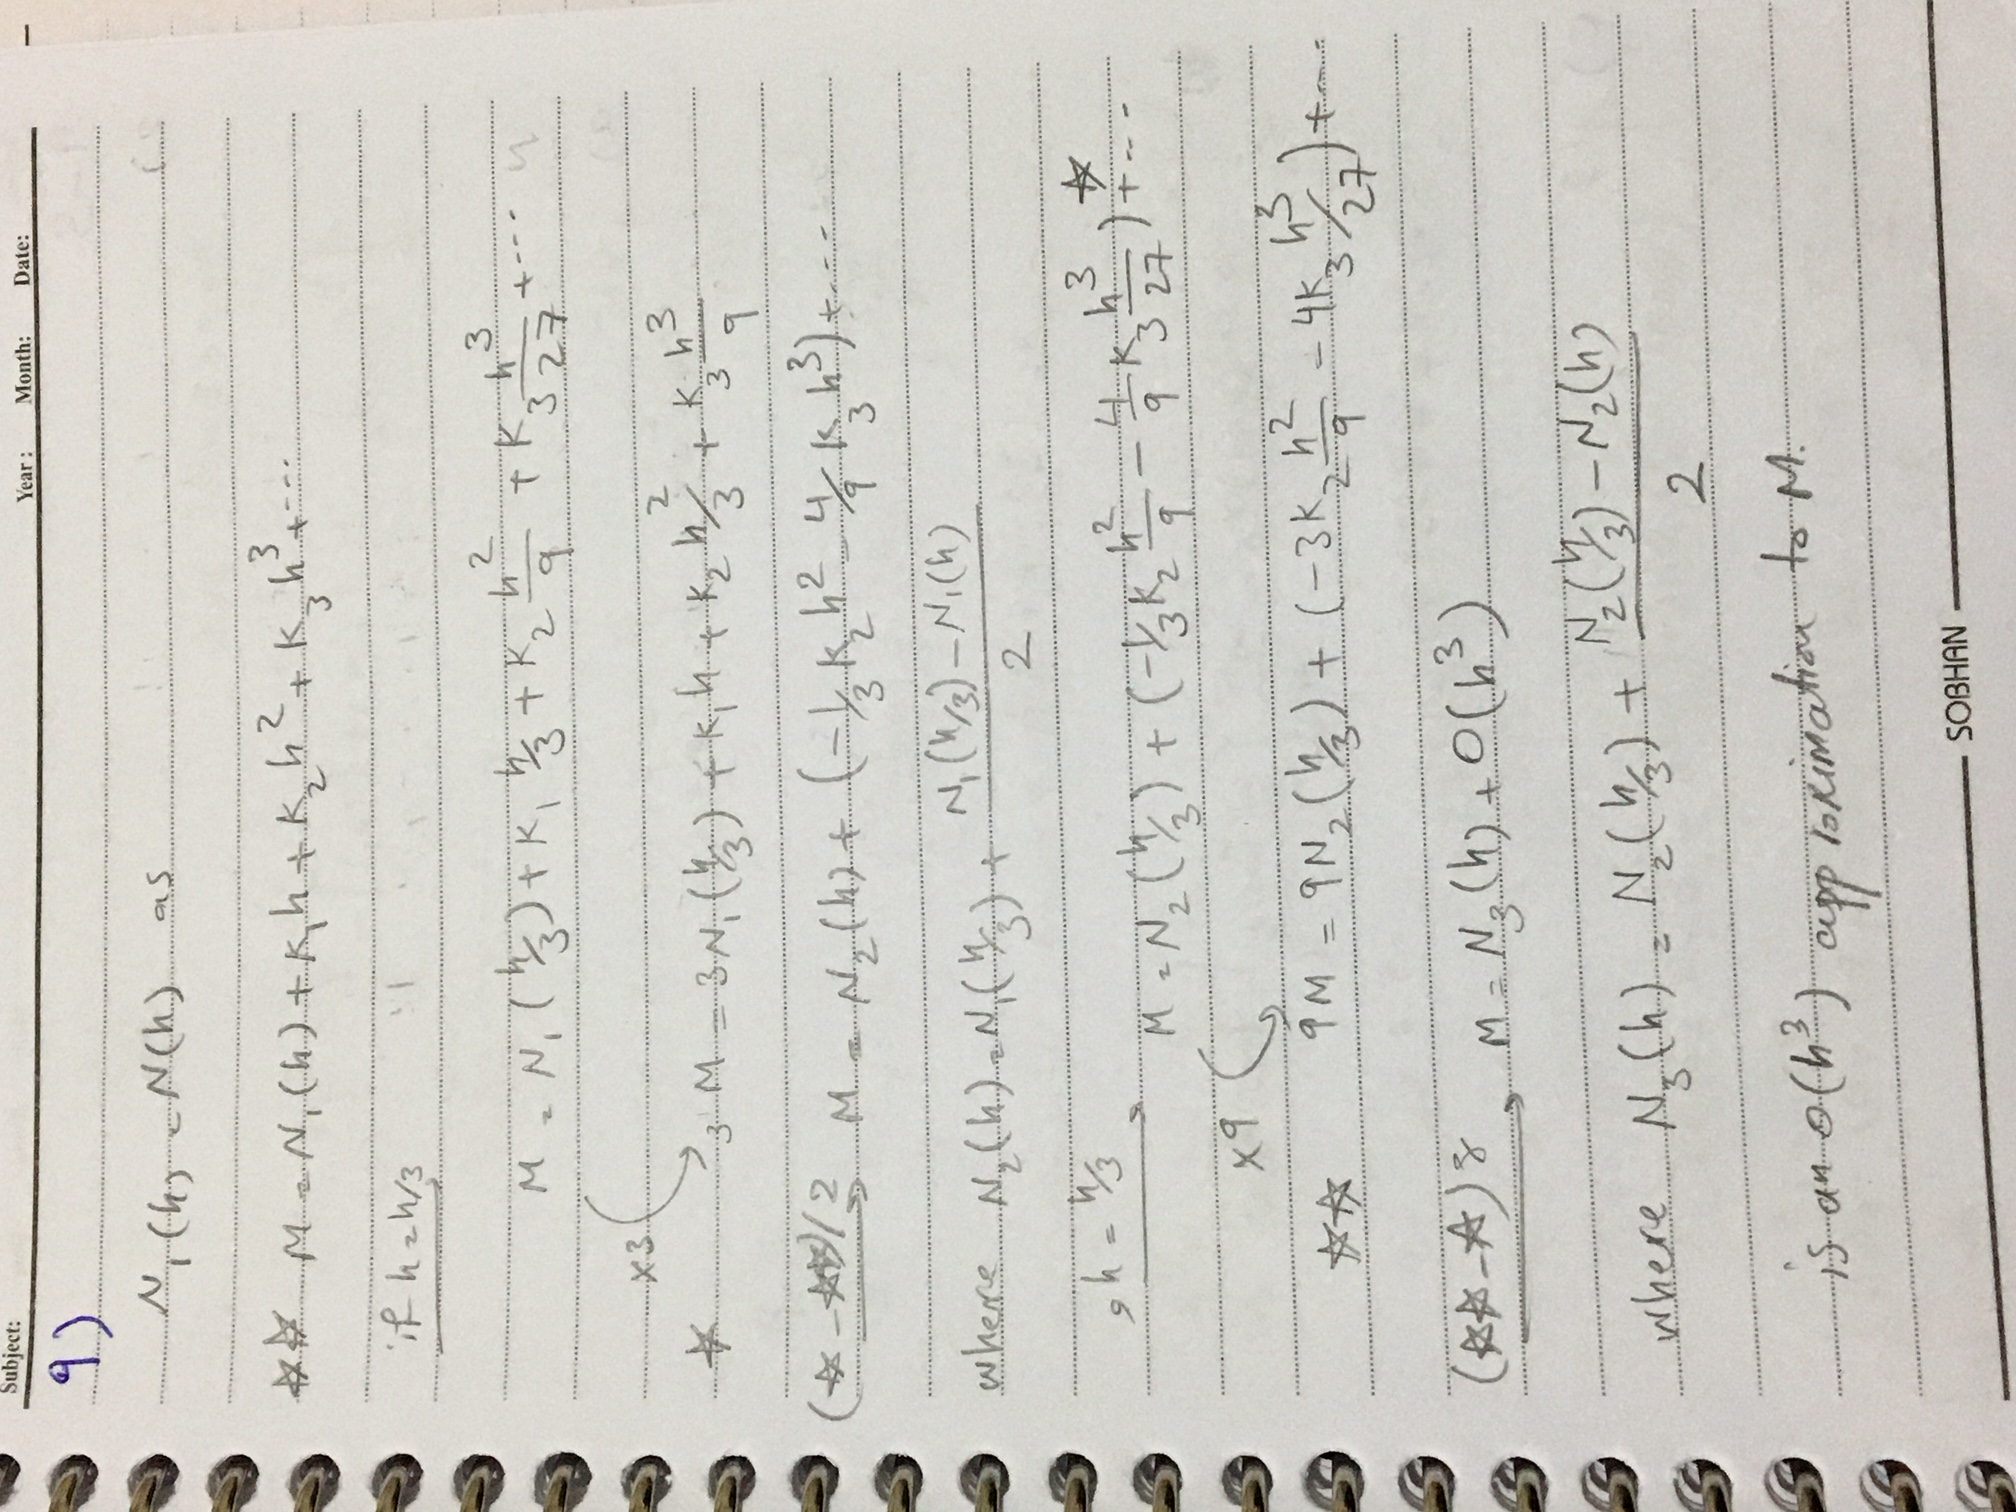 Subject:
Year : Month: Date:
9)
N₁(h) = N(h) as
☆☆ M = N₁(h) + K₁h + K₂h² + K₃h³ + ...
if h = h/3
M = N₁(h/3) + K₁ h/3 + K₂ h²/9 + K₃ h³/27 + ...
×3
☆ 3M = 3N₁(h/3) + K₁h + K₂ h²/3 + K₃ h³/9
(☆ - ☆☆)/2 M = N₂(h) + (-1/3 K₂h² - 4/9 K₃h³) + ...
where N₂(h) = N₁(h/3) + (N₁(h/3) - N₁(h))/2
, h = h/3 M = N₂(h/3) + (-1/3 K₂ h²/9 - 4/9 K₃ h³/27) + ... ☆
×9
☆☆ 9M = 9N₂(h/3) + (-3K₂ h²/9 - 4K₃ h³/27) + ...
(☆☆ - ☆) 8 M = N₃(h) + O(h³)
where N₃(h) = N₂(h/3) + (N₂(h/3) - N₂(h))/2
is an O(h³) approximation to M.
SOBHAN